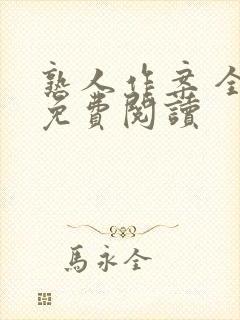 熟人作案全
免費閱讀
馬永全